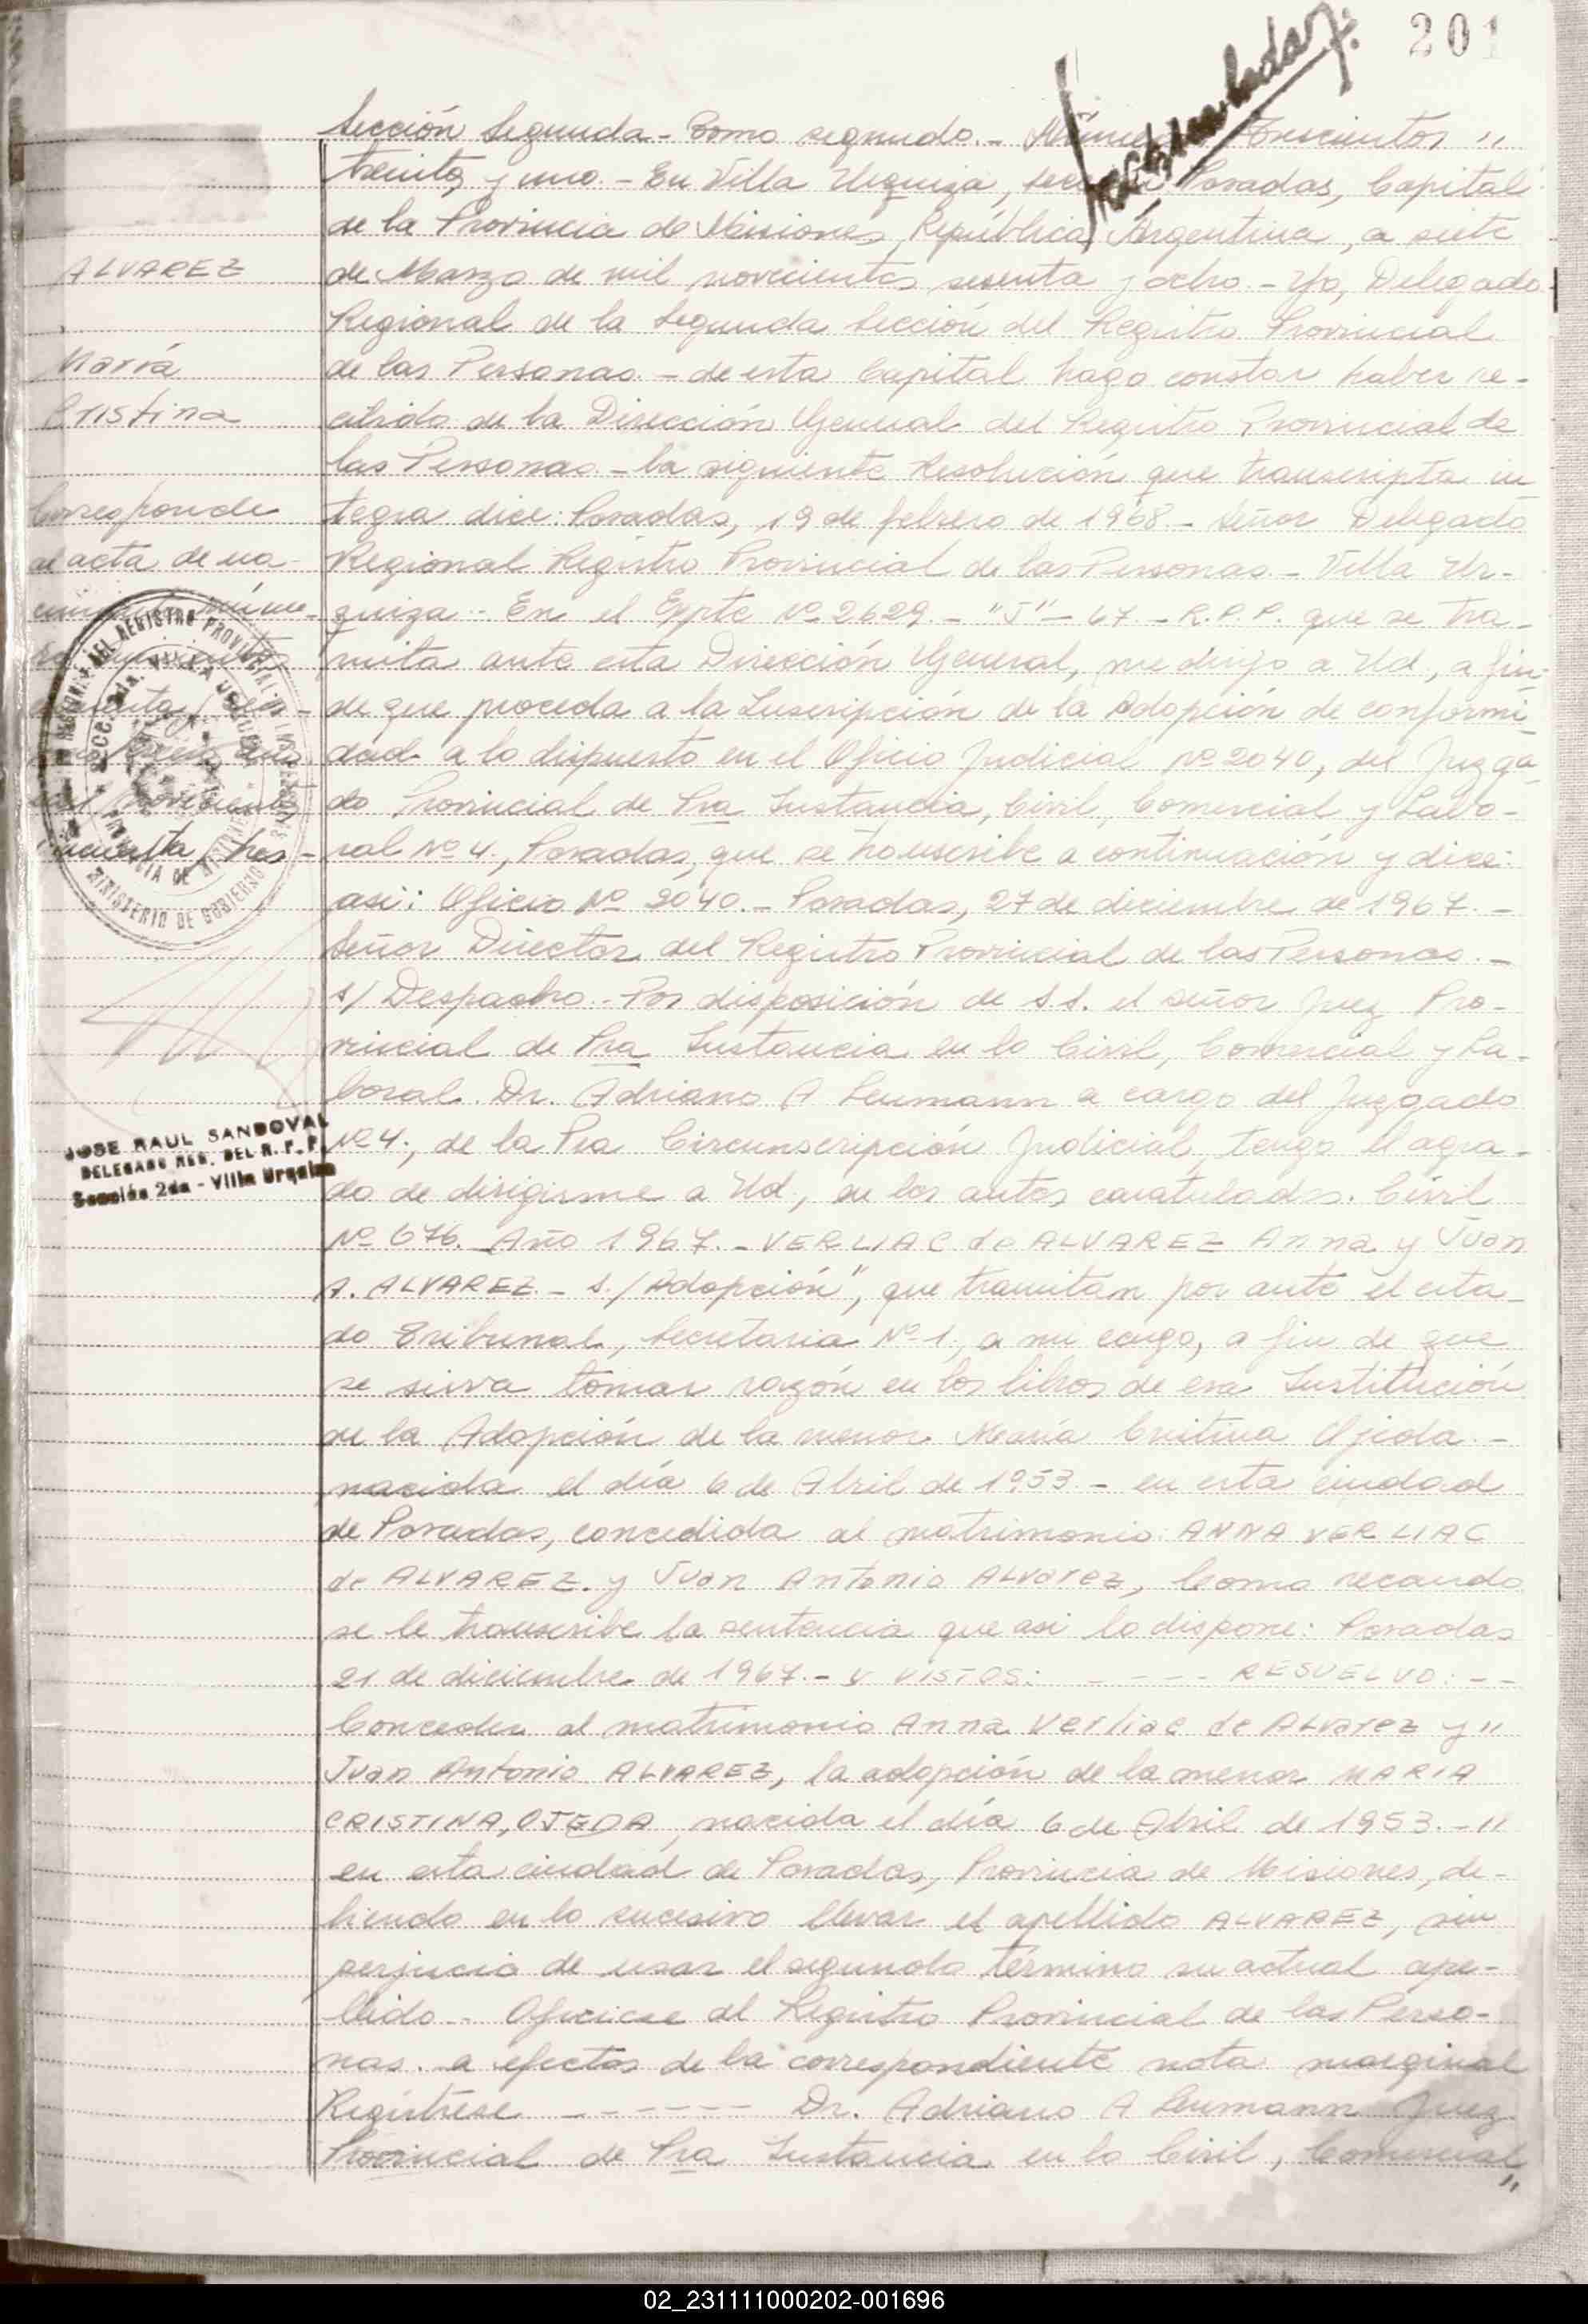 201
Sección Segunda - Tomo segundo. - Trescientos "
treinta y uno. - En Villa Urquiza, Posadas, Capital
de la Provincia de Misiones, República Argentina, a siete
ALVAREZ
de Marzo de mil novecientos sesenta y ocho. - Yo, Delegado
Regional de la Segunda Sección del Registro Provincial
María
de las Personas. - de esta Capital hago constar haber re-
Cristina
cibido de la Dirección General del Registro Provincial de
las Personas - la siguiente Resolución que transcripta in
Corresponde
tegra dice: Posadas, 19 de febrero de 1968 - Señor Delegado
al acta de na-
Regional Registro Provincial de las Personas - Villa Ur-
quiza - En el Expte Nº 2629. - "J" - 67. - R.P.P. que se tra-
mita ante esta Dirección General, me dirijo a Ud., a fin
de que proceda a la Inscripción de la Adopción de conformi
dad a lo dispuesto en el Oficio Judicial Nº 2040, del Juzga-
novecientos
do Provincial de Pra Instancia, Civil, Comercial y Labo-
cincuenta tres -
ral Nº 4, Posadas, que se transcribe a continuación y dice:
MINISTERIO DE GOBIERNO
asi: Oficio Nº 2040. - Posadas, 27 de diciembre de 1967. -
Señor Director del Registro Provincial de las Personas. -
s/ Despacho. - Por disposición de S.S. el señor Juez Pro-
vincial de Pra Instancia en lo Civil, Comercial y La-
boral. Dr. Adriano A Leumann a cargo del Juzgado
JOSE RAUL SANDOVAL
DELEGADO REG. DEL R. P. P.
Sección 2da - Villa Urquiza
Nº 4., de la Pra Circunscripción Judicial, tengo el agra-
do de dirigirme a Ud., en los autos caratulados. Civil
Nº 676. Año 1967. - VERLIAC de ALVAREZ Anna y Juan
A. ALVAREZ. - S./Adopción", que tramitan por ante el cita-
do Tribunal, Secretaria Nº 1, a mi cargo, a fin de que
se sirva tomar razón en los libros de esa Institución
de la Adopción de la menor María Cristina Ojeda. -
nacida el día 6 de Abril de 1953 - en esta ciudad
de Posadas, concedida al matrimonio: ANNA VERLIAC
de ALVAREZ. y Juan Antonio ALVAREZ, Como recaudo
se le transcribe la sentencia que asi lo dispone: Posadas
21 de diciembre de 1967. - Y VISTOS: - - - - RESUELVO: - -
Conceder al matrimonio Anna Verliac de ALVAREZ y "
Juan Antonio ALVAREZ, la adopción de la menor MARIA
CRISTINA, OJEDA, nacida el día 6 de Abril de 1953. - "
en esta ciudad de Posadas, Provincia de Misiones, de-
biendo en lo sucesivo llevar el apellido ALVAREZ, sin
perjucio de usar el segundo término su actual ape-
llido. - Oficiese al Registro Provincial de las Perso-
nas. a efectos de la correspondiente nota marginal
Regístrese - - - - - - Dr. Adriano A Leumann Juez
Provincial de Pra Instancia en lo Civil, Comercial "
02_231111000202-001696